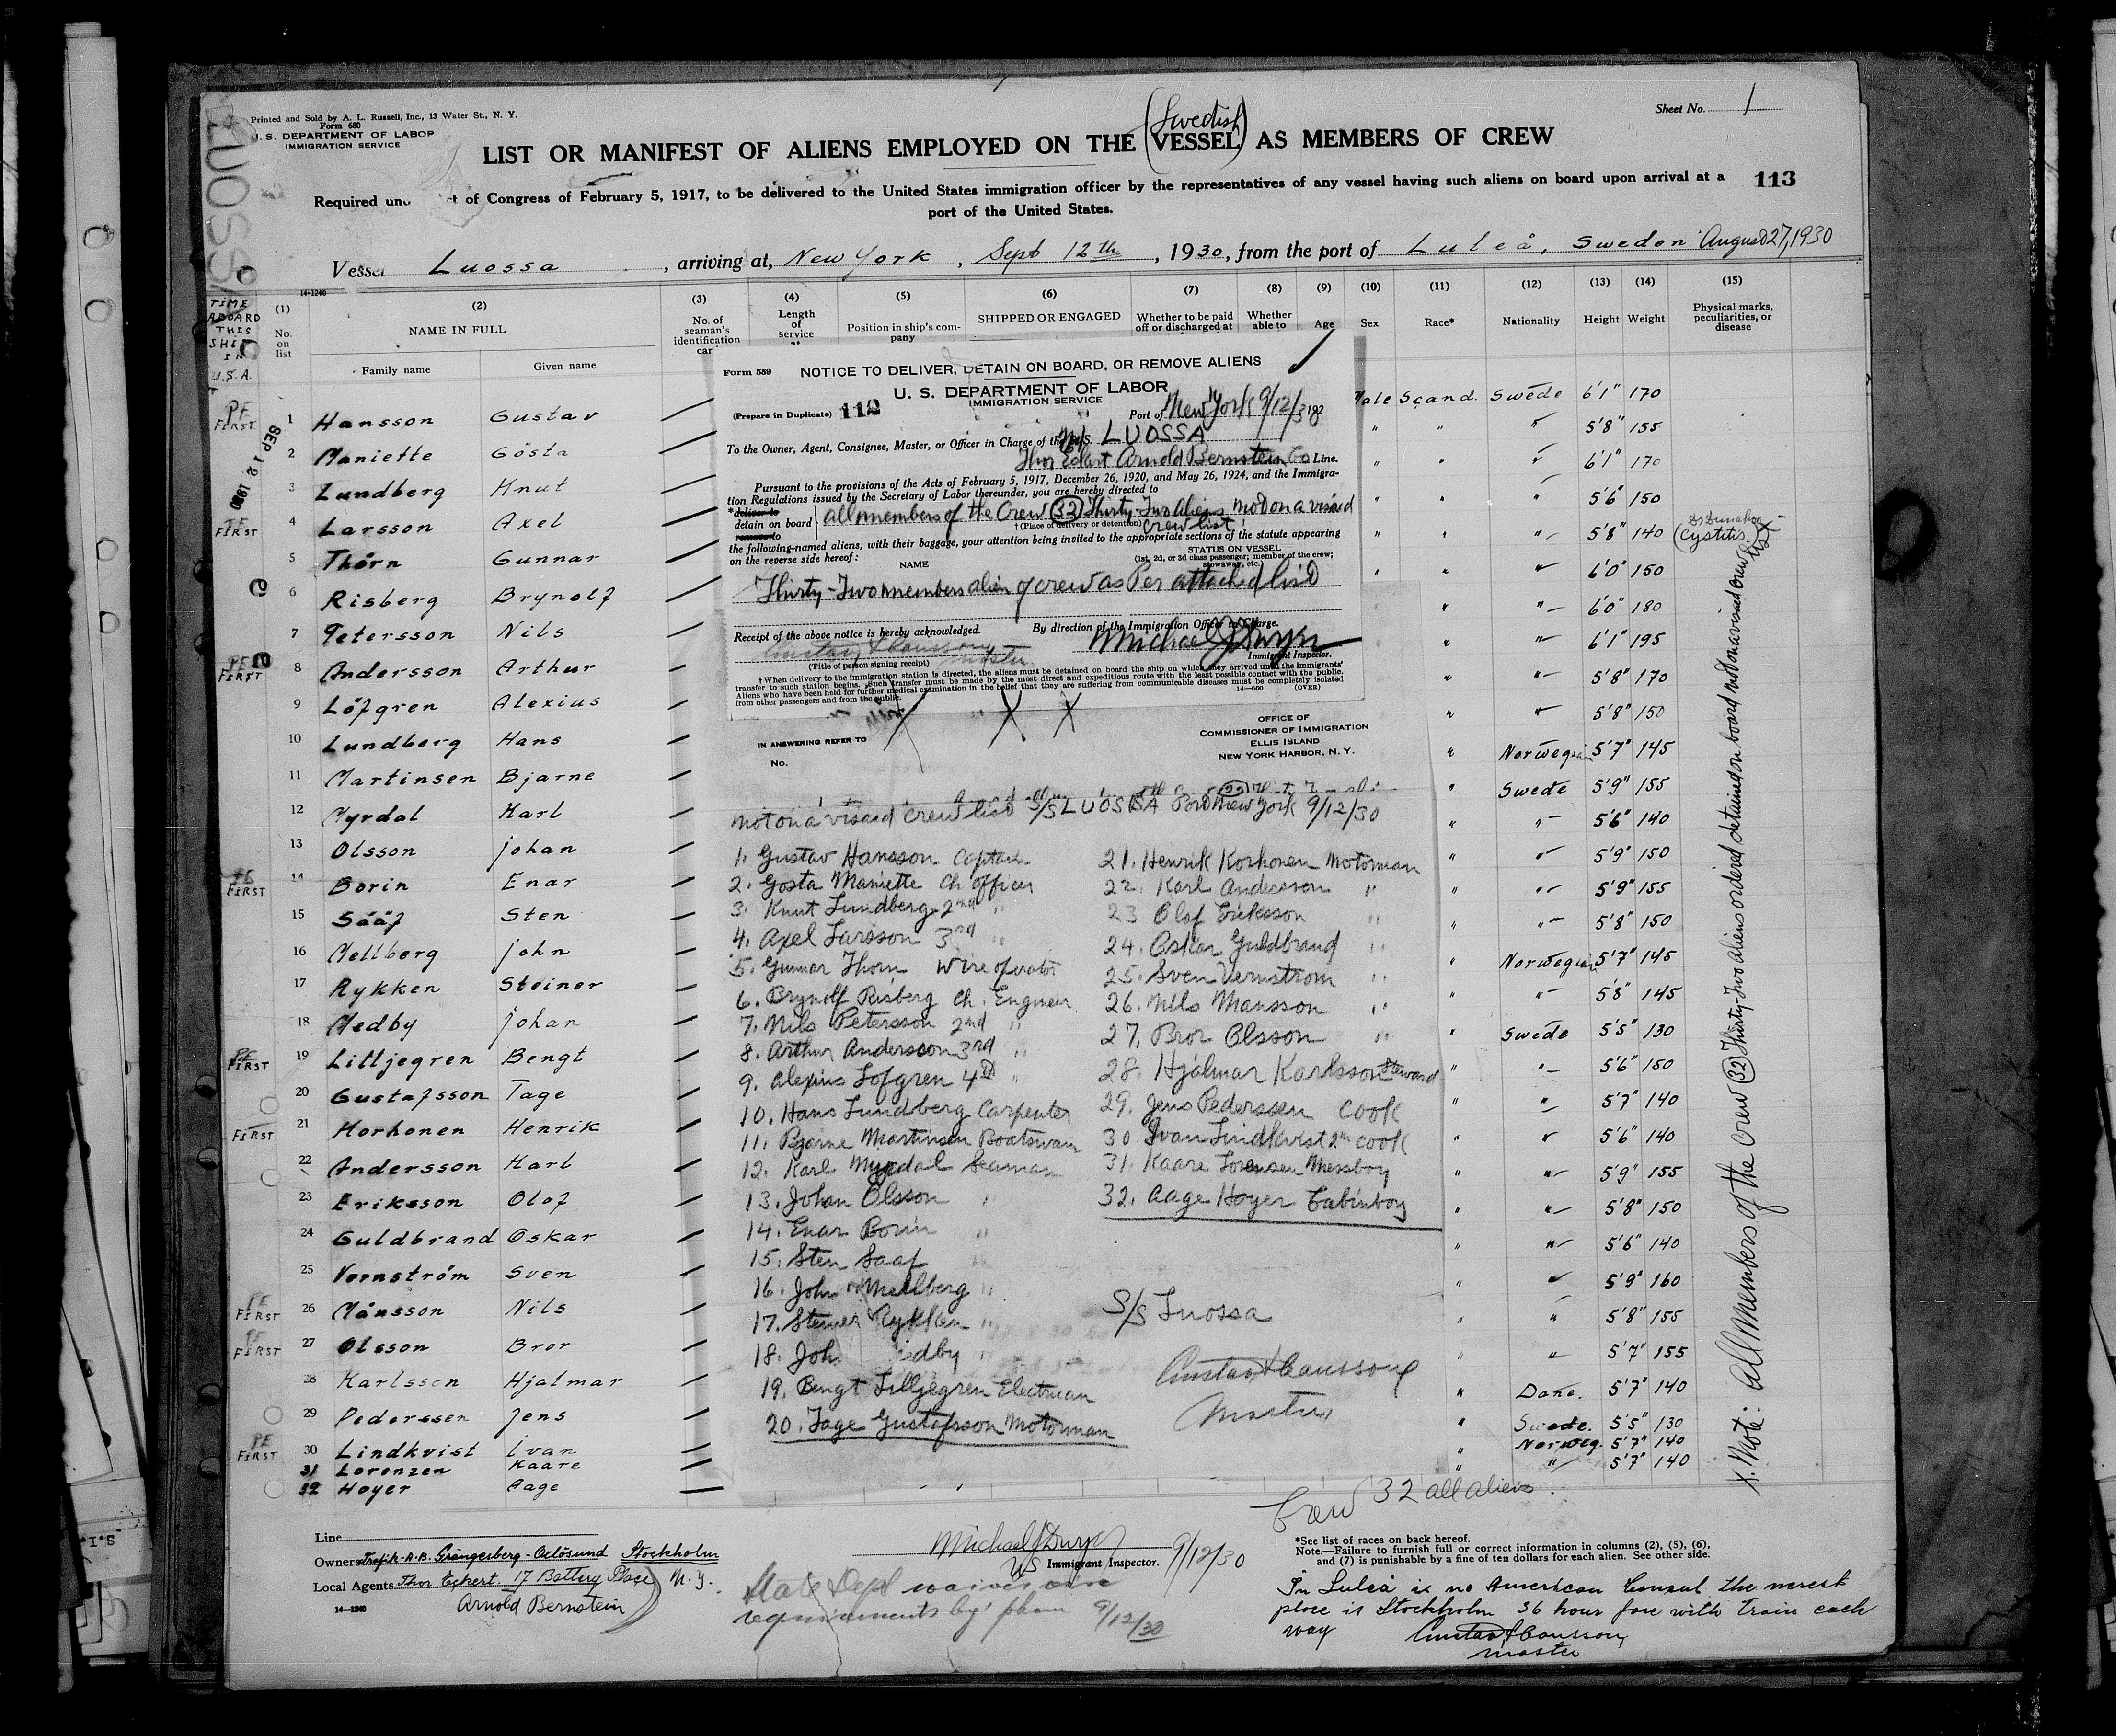 Printed and Sold by A. L. Russell, Inc., 13 Water St., N. Y.
Form 680
U. S. DEPARTMENT OF LABOR
IMMIGRATION SERVICE
LUOSSA
Sheet No. 1
(Swedish)
LIST OR MANIFEST OF ALIENS EMPLOYED ON THE VESSEL AS MEMBERS OF CREW
113
Required und ct of Congress of February 5, 1917, to be delivered to the United States immigration officer by the representatives of any vessel having such aliens on board upon arrival at a
port of the United States.
Vessel Luossa, arriving at, New York, Sept 12th, 1930, from the port of Luleå, Sweden August 27, 1930
14-1240
TIME ABOARD THIS SHIP IN U.S.A.
(1) (2) (3) (4) (5) (6) (7) (8) (9) (10) (11) (12) (13) (14) (15)
No. on list
NAME IN FULL
Family name Given name
No. of seaman's identification car
Length of service at
Position in ship's company
SHIPPED OR ENGAGED
Whether to be paid off or discharged at
Whether able to
Age
Sex
Race*
Nationality
Height
Weight
Physical marks, peculiarities, or disease
SEP 12 1930
PE FIRST 1 Hansson Gustav
2 Maniette Gösta
3 Lundberg Knut
PE FIRST 4 Larsson Axel
5 Thörn Gunnar
6 Risberg Brynolf
7 Petersson Nils
PE FIRST 8 Andersson Arthur
9 Löfgren Alexius
10 Lundberg Hans
11 Martinsen Bjarne
12 Myrdal Karl
13 Olsson Johan
PE FIRST 14 Borin Enar
15 Sääf Sten
16 Mellberg John
17 Rykken Steiner
18 Medby Johan
PE FIRST 19 Lilljegren Bengt
20 Gustafsson Tage
FIRST 21 Korhonen Henrik
22 Andersson Karl
23 Eriksson Olof
24 Guldbrand Oskar
25 Vernström Sven
PE FIRST 26 Månsson Nils
PE FIRST 27 Olsson Bror
28 Karlsson Hjalmar
29 Pederssen Jens
PE FIRST 30 Lindkvist Ivan
31 Lorenzen Kaare
32 Hoyer Aage
Form 559
NOTICE TO DELIVER, DETAIN ON BOARD, OR REMOVE ALIENS
U. S. DEPARTMENT OF LABOR
IMMIGRATION SERVICE
(Prepare in Duplicate) 112
Port of New York 9/12/3 192
To the Owner, Agent, Consignee, Master, or Officer in Charge of the S. S. LUOSSA
Thor Eckert Arnold Bernstein Co Line.
Pursuant to the provisions of the Acts of February 5, 1917, December 26, 1920, and May 26, 1924, and the Immigra-
tion Regulations issued by the Secretary of Labor thereunder, you are hereby directed to
*deliver to
detain on board all members of the Crew (32) Thirty-Two Aliens not on a visaed
remove to
†(Place of delivery or detention) crew list
the following-named aliens, with their baggage, your attention being invited to the appropriate sections of the statute appearing
on the reverse side hereof:
NAME
STATUS ON VESSEL
(1st, 2d, or 3d class passenger; member of the crew; stowaway, etc.)
Thirty-Two members alien of crew as Per attached list
Receipt of the above notice is hereby acknowledged.
By direction of the Immigration Officer in Charge.
Gustav Hansson master
Michael J Dwyer
(Title of person signing receipt)
Immigrant Inspector.
† When delivery to the immigration station is directed, the aliens must be detained on board the ship on which they arrived until the immigrants'
transfer to such station begins. Such transfer must be made by the most direct and expeditious route with the least possible contact with the public.
Aliens who have been held for further medical examination in the belief that they are suffering from communicable diseases must be completely isolated
from other passengers and from the public.
14—660 (OVER)
OFFICE OF
COMMISSIONER OF IMMIGRATION
ELLIS ISLAND
NEW YORK HARBOR, N. Y.
IN ANSWERING REFER TO
No.
not on a visaed crew list S/S LUOSSA Port New York 9/12/30
1. Gustav Hansson Captain
2. Gosta Maniette Ch officer
3. Knut Lundberg 2nd "
4. Axel Larsson 3rd "
5. Gunnar Thorn Wire operator
6. Brynolf Risberg Ch. Engineer
7. Nils Petersson 2nd "
8. Arthur Andersson 3rd "
9. Alexius Lofgren 4th "
10. Hans Lundberg Carpenter
11. Bjarne Martinsen Boatswain
12. Karl Myrdal Seaman
13. Johan Olsson "
14. Enar Borin "
15. Sten Saaf
16. John Mellberg "
17. Steiner Rykken "
18. Joh edby "
19. Bengt Lilljegren Electrician
20. Tage Gustafsson Motorman
21. Henrik Korhonen Motorman
22. Karl Andersson "
23 Olof Eriksson "
24. Oskar Guldbrand "
25. Sven Vernstrom "
26. Nils Mansson "
27. Bror Olsson "
28. Hjalmar Karlsson Steward
29. Jens Pederssen Cook
30 Ivan Lindkvist 2nd cook
31. Kaare Lorensen Messboy
32. Aage Hoyer Cabinboy
S/S Luossa
Gustav Hansson
Master
Male Scand. Swede 6'1" 170
" " " 5'8" 155
" " " 6'1" 170
" " " 5'6" 150
" " " 5'8" 140 (Cystitis)
" " " 6'0" 150
" " 6'0" 180
" " 6'1" 195
" " 5'8" 170
" " 5'8" 150
" Norwegian 5'7" 145
" Swede 5'9" 155
" " 5'6" 140
" " 5'9" 150
" " 5'9" 155
" " 5'8" 150
" Norwegian 5'7" 145
" " 5'8" 145
" Swede 5'5" 130
" " 5'6" 150
" " 5'7" 140
" " 5'6" 140
" " 5'9" 155
" " 5'8" 150
" " 5'6" 140
" " 5'9" 160
" " 5'8" 155
" " 5'7" 155
" Dane. 5'7" 140
" Swede. 5'5" 130
" Norweg. 5'7" 140
" " 5'7" 140
x. Note: All Members of the Crew (32) Thirty-Two Aliens ordered detained on board not on a visaed crew list
Crew 32 all aliens.
Line
Owners Trafik-A.B. Grängesberg-Oxlösund Stockholm
Local Agents Thor Eckert. 17 Battery Place N.Y.
Arnold Bernstein
14—1240
Michael J Dwyer
US Immigrant Inspector. 9/12/30
State Dept waives visa
requirements by phone 9/12/30
*See list of races on back hereof.
Note.—Failure to furnish full or correct information in columns (2), (5), (6),
and (7) is punishable by a fine of ten dollars for each alien. See other side.
In Luleå is no American Consul the nerest
place is Stockholm 36 hour fare with train each
way
Gustav Hansson
master